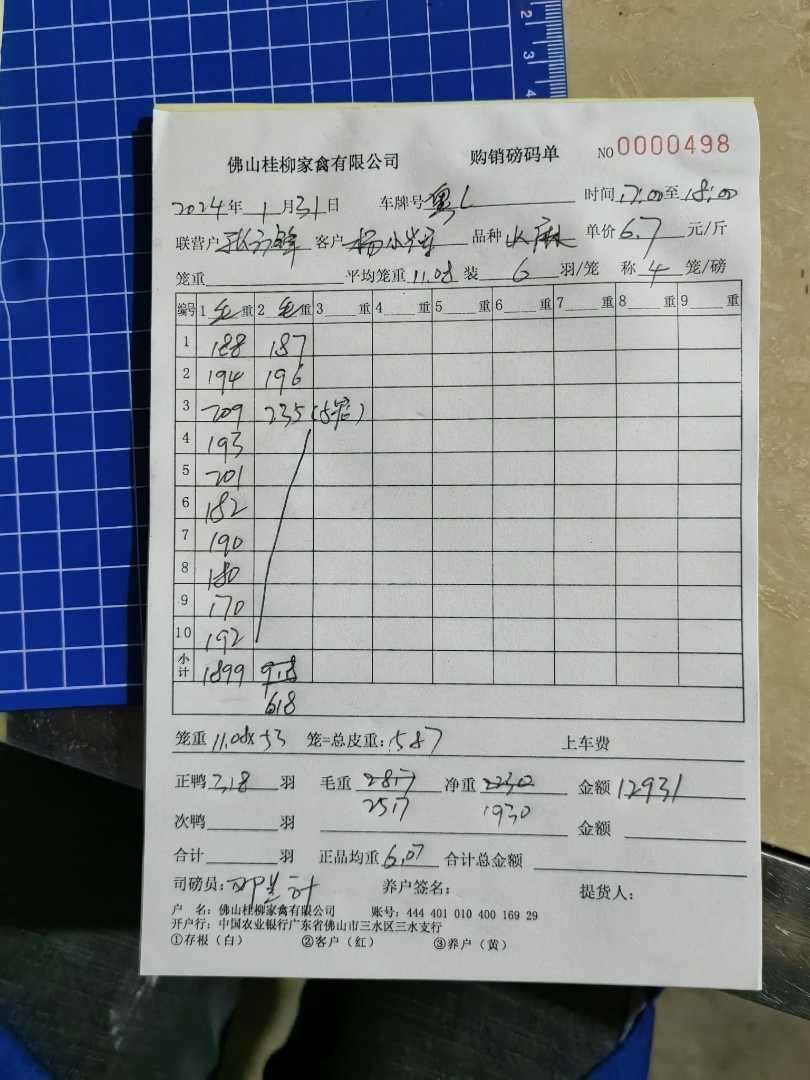 2
3
4
佛山桂柳家禽有限公司 购销磅码单 NO 0000498
2024年 1 月31日 车牌号 粤L 时间 17:00至 18:00
联营户 客户 杨小 品种 麻 单价 6.7 元/斤
笼重 平均笼重 11.08 装 6 羽/笼 称 4 笼/磅
编号 1 毛 重 2 毛 重 3 重 4 重 5 重 6 重 7 重 8 重 9 重
1 188 187
2 194 196
3 209 235 (5笼)
4 193
5 201
6 182
7 190
8 180
9 170
10 192
小计 1899 918
618
笼重 11.08×53 笼=总皮重: 587 上车费
正鸭 318 羽 毛重 2817 净重 2230 金额 12931
2517 1930
次鸭 羽 金额
合计 羽 正品均重 6.07 合计总金额
司磅员: 养户签名: 提货人:
户 名: 佛山桂柳家禽有限公司 账号: 444 401 010 400 169 29
开户行: 中国农业银行广东省佛山市三水区三水支行
①存根（白） ②客户（红） ③养户（黄）